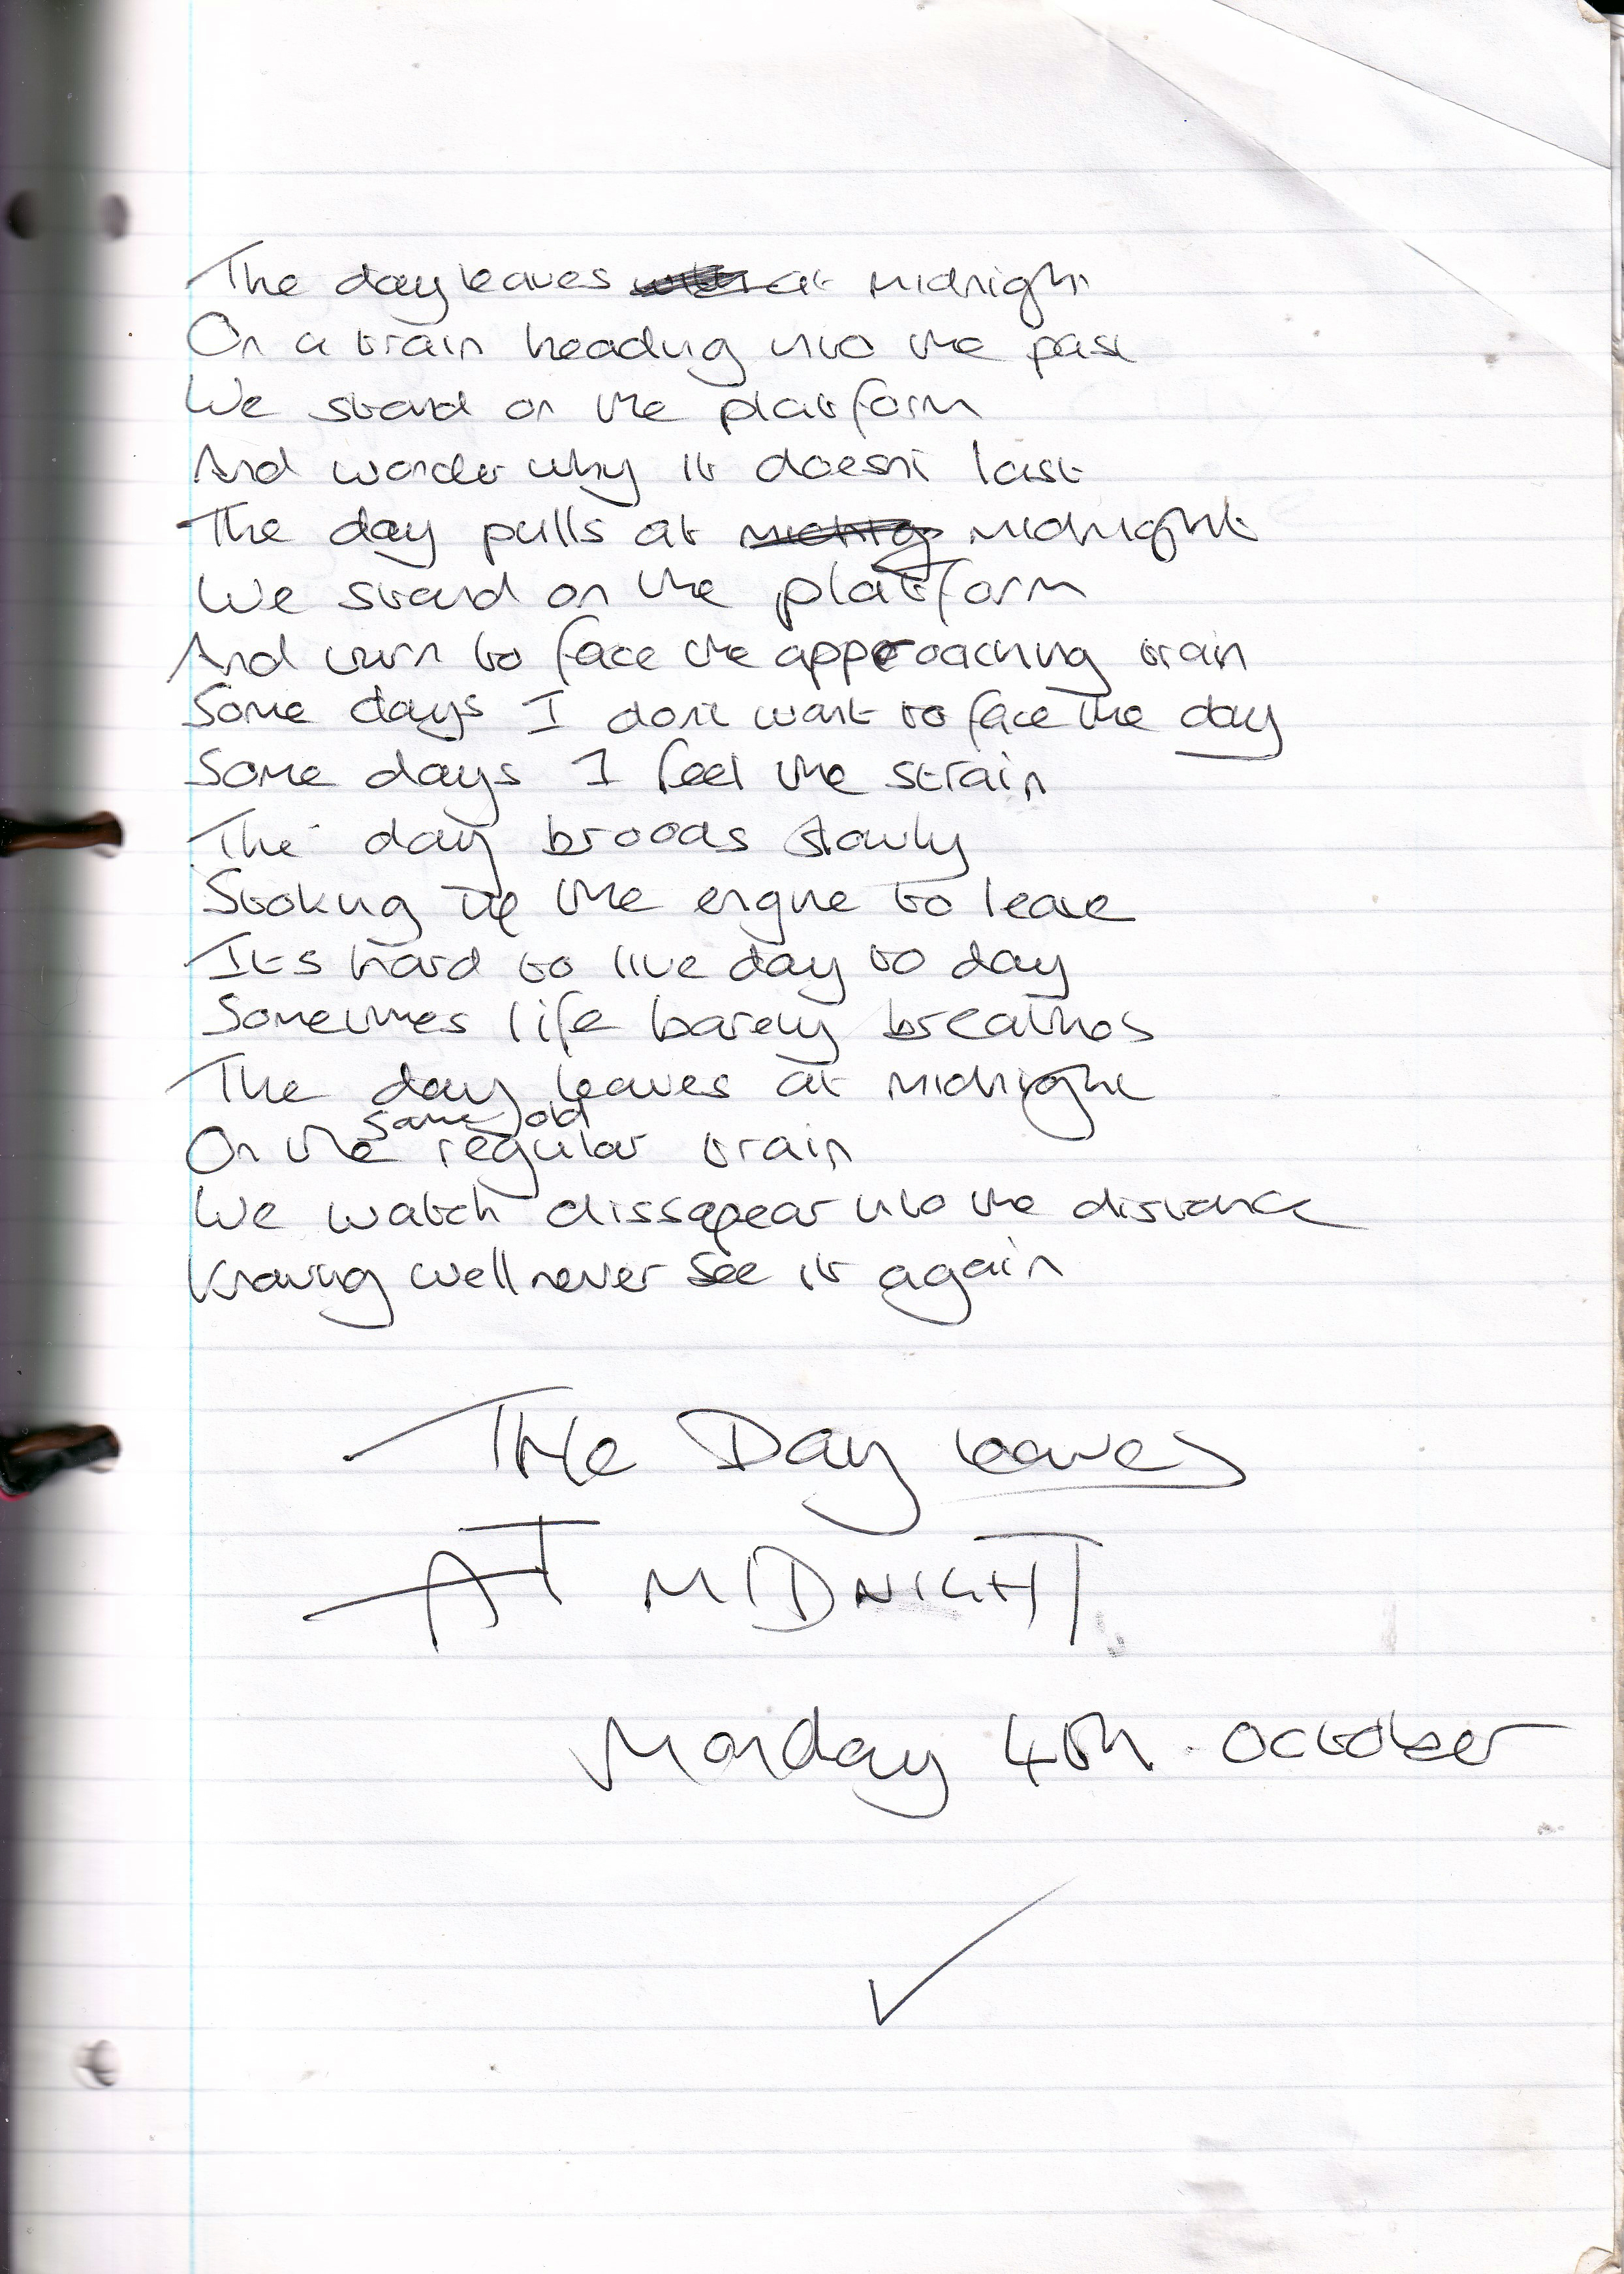 The day leaves at midnight
On a train heading into the past
We stand on the platform
And wonder why it doesnt last
The day pulls at midnight
We stand on the platform
And turn to face the approaching train
Some days I dont want to face the day
Some days I feel the strain
The day broods slowly
Stoking up the engine to leave
Its hard to live day to day
Sometimes life barely breathes
The day leaves at midnight
same old
On the regular train
We watch dissapear into the distance
Knowing well never see it again
THe Day leaves
AT MIDNIGHT
Monday 4th October